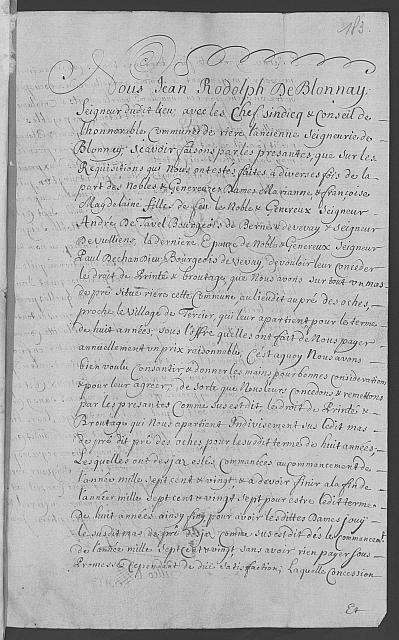 183.
Nous Jean Rodolph De Blonnay,
Seigneur dudit lieu, avec les Chef, sindicq & Conseil de
lhonnorable Commune de riere lancienne Seigneurie de
Blonnay; scavoir faisons par les presantes, que sur les
Requisitions qui Nous ont estés faites à diverses fois de la
part des Nobles & Genereuzes Dames Marianne & françoise
Magdelaine filles de feu le Noble & Genereux Seigneur
André De Tavel Bourgeois de Berne & de vevay & Seigneur
De vulliens, la derniere Epouze de Noble & Genereux Seigneur
Paul De chandieu Bourgeois de vevay de vouloir leur Conceder
le droit de Printé & broutage, que Nous avons sur tout un mas
de pré situé riere cette Commune, au lieu dit au pré des oches,
proche le village de Tercier, qui leur apartient pour le terme
de huit années, sous l'offre qu'elles ont fait de Nous payer
annuellement un prix raisonnable, C'est a quoy Nous avons
bien voulu Consantir & donner les mains pour bonnes considerations
& pour leur agreer, de sorte que Nous leurs Concedons & remettons
par les presantes Comme sus est dit, le droit de Printé &
Broutage qui Nous apartient Indivisement sus le dit mas
de pré dit pré des oches pour le susdit terme de huit années,
Lesquelles ont desja estés commancées au commancement de
lannée mille sept cent & vingt & a devoir finir a la fin de
lannée mille sept cent & vingt sept pour estre le dit terme
de huit années ainsy finy, pour avoir les dittes Dames jouy
le susdit mas de pré desja Comme sus est dit dès le commancement
de lannée mille sept cent & vingt sans avoir rien payer sous
Promesse Cependant de düe satisfaction; Laquelle Concession
Et